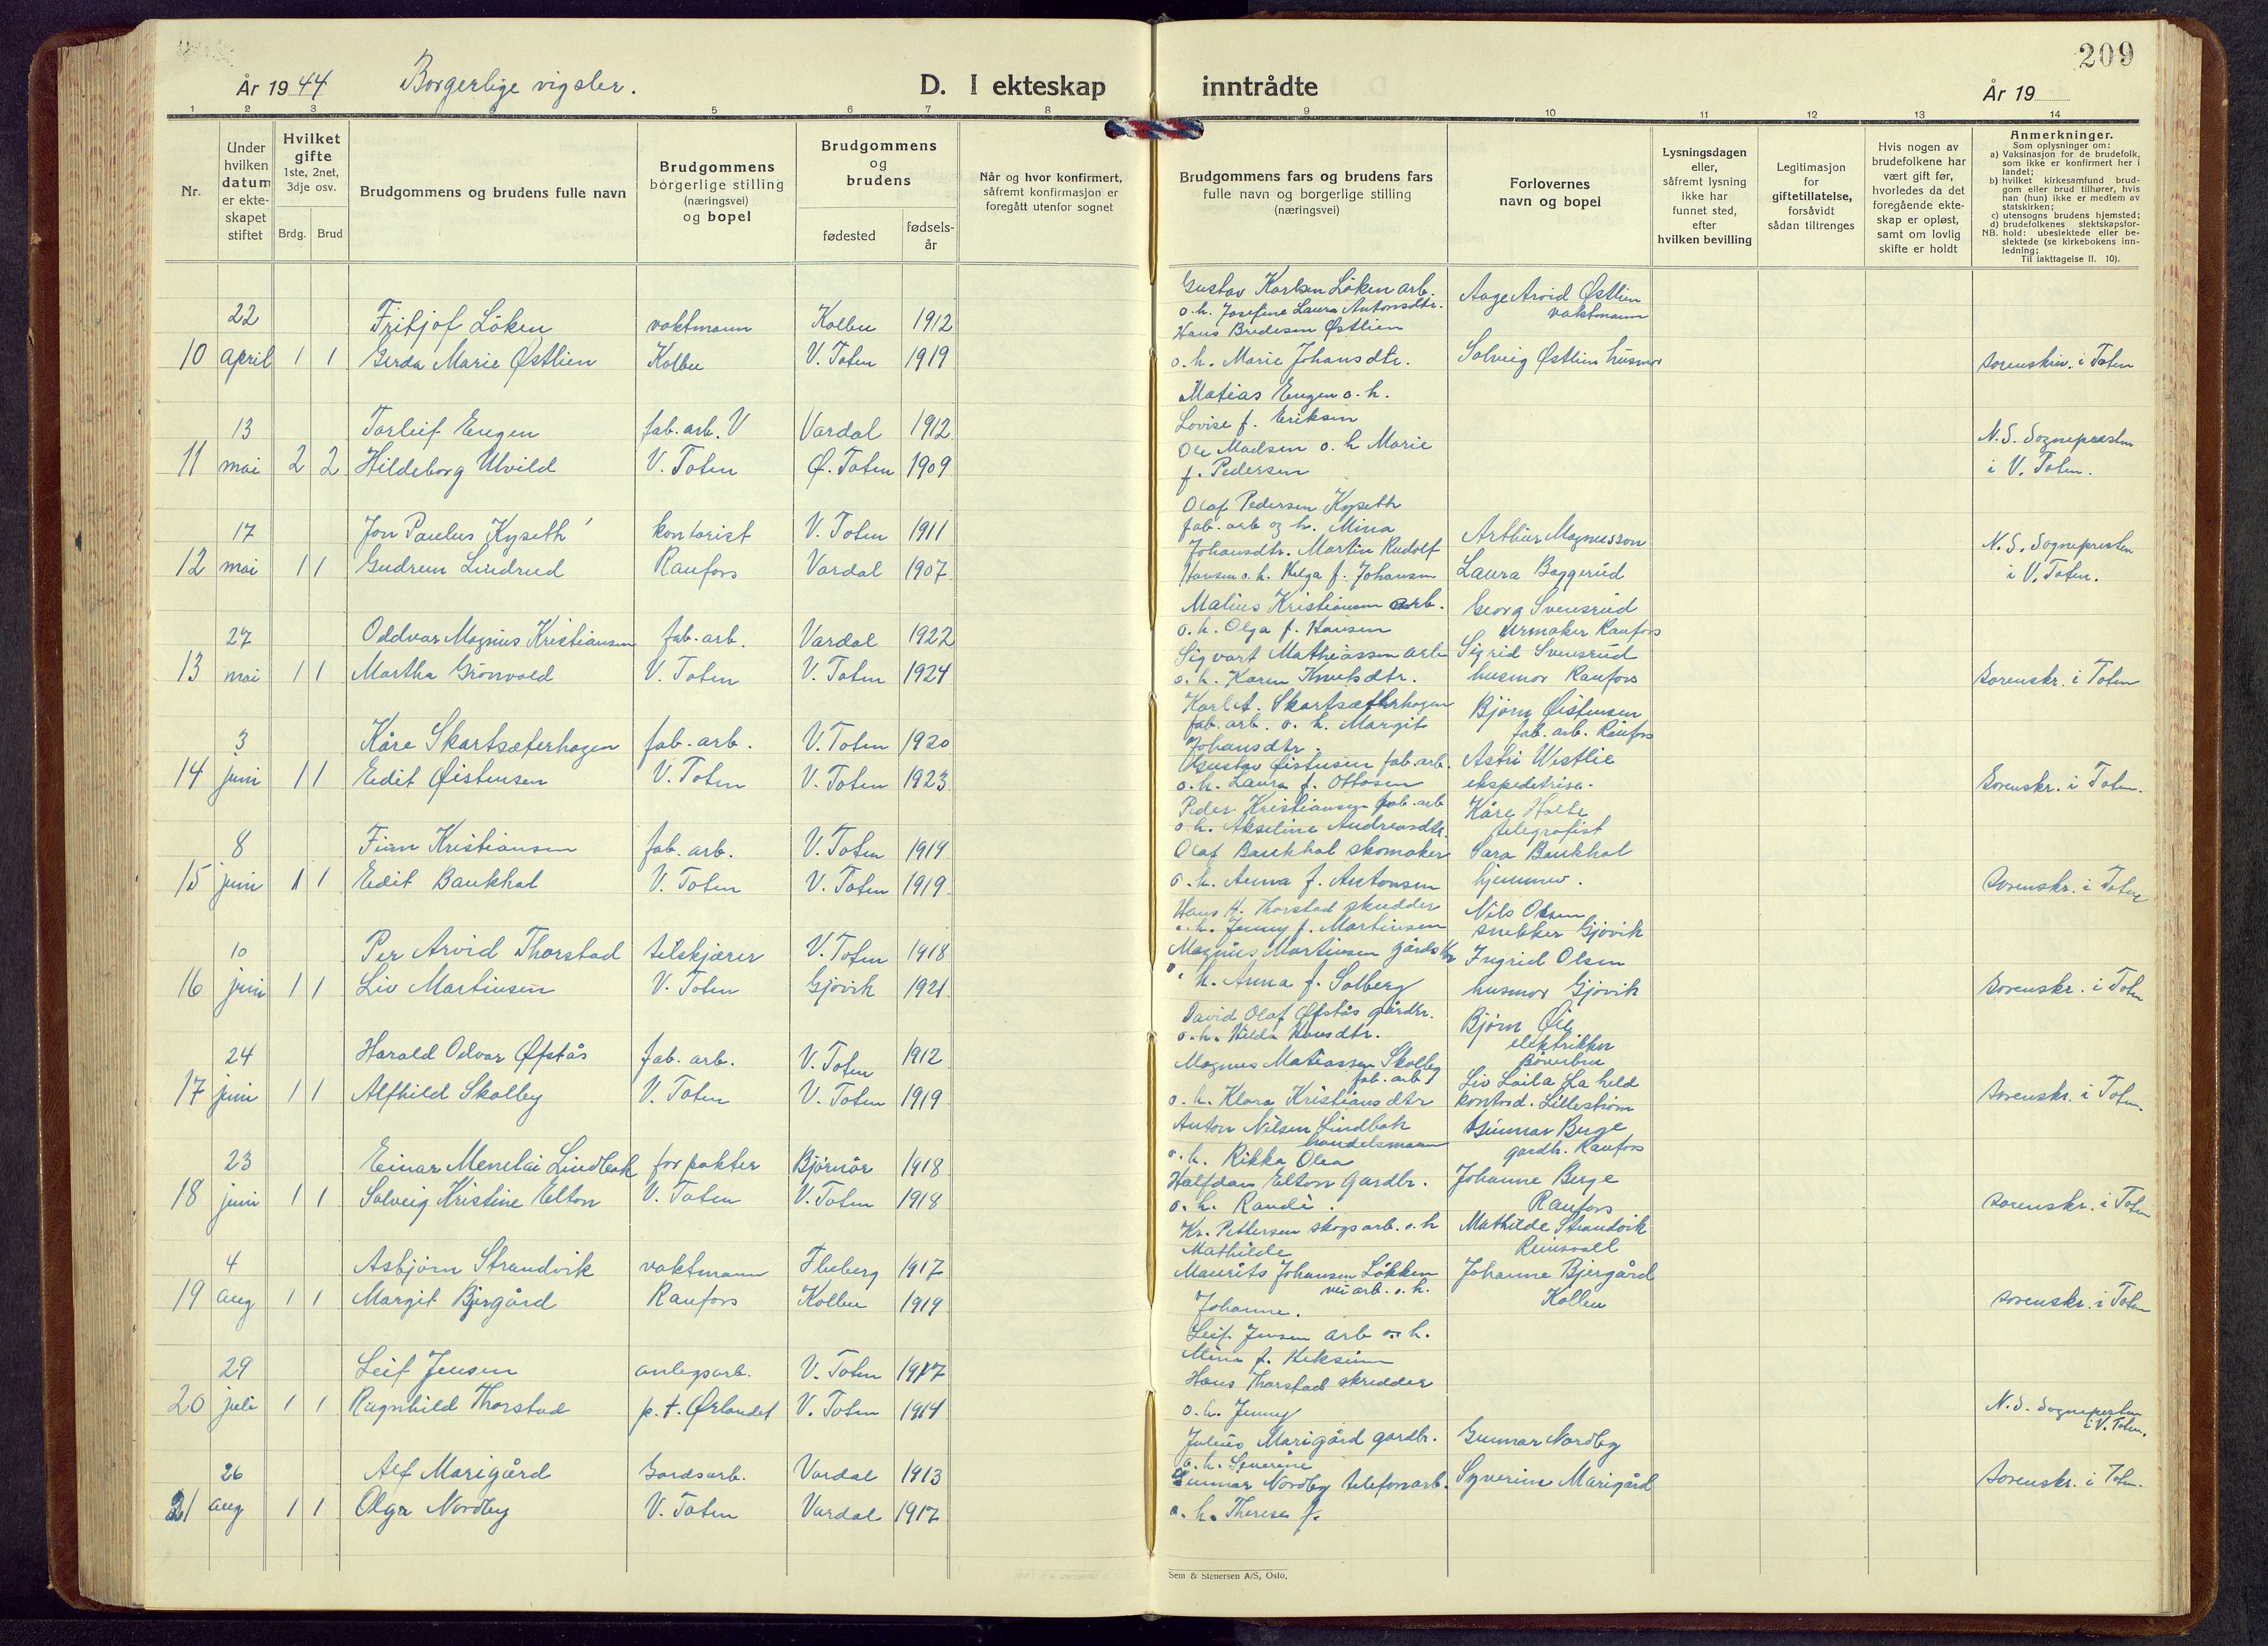 209
År 1944 Borgerlige vigsler. D. I ekteskap inntrådte År 19
1 2 3 5 6 7 8 9 10 11 12 13 14
Nr.
Under hvilken datum er ekteskapet stiftet
Hvilket gifte 1ste, 2net, 3dje osv.
Brdg. Brud
Brudgommens og brudens fulle navn
Brudgommens borgerlige stilling (næringsvei) og bopel
Brudgommens og brudens
fødested
fødselsår
Når og hvor konfirmert, såfremt konfirmasjon er foregått utenfor sognet
Brudgommens fars og brudens fars fulle navn og borgerlige stilling (næringsvei)
Forlovernes navn og bopel
Lysningsdagen eller, såfremt lysning ikke har funnet sted, efter hvilken bevilling
Legitimasjon for giftetillatelse, forsåvidt sådan tiltrenges
Hvis nogen av brudefolkene har vært gift før, hvorledes da det foregående ekteskap er opløst, samt om lovlig skifte er holdt
Anmerkninger.
Som oplysninger om:
a) Vaksinasjon for de brudefolk, som ikke er konfirmert her i landet;
b) hvilket kirkesamfund brudgom eller brud tilhører, hvis han (hun) ikke er medlem av statskirken;
c) utensogns brudens hjemsted;
d) brudefolkenes slektskapsforhold: ubeslektede eller beslektede (se kirkebokens innledning;
NB.
Til iakttagelse II. 10).
22 Fritjof Löken vaktmann Kolbu 1912
10 april 1 1 Gerda Marie Østlien Kolbu V. Toten 1919
Gustav Karlsen Löken arb.
o. h. Josefine Laura Antonsdtr.
Hans Bredesen Østlien
o. h. Marie Johansdtr.
Aage Arvid Østlien
vaktmann
Solveig Østlien husmor
sorenskriv. i Toten
13 Torleif Engen fab. arb. V Vardal 1912
11 mai 2 2 Hildeborg Ulvild V. Toten Ø. Toten 1909
Matias Engen o. h.
Lovise f. Eriksen
Ole Madsen o. h Marie
f. Pedersen
N. S. Sognepresten
i V. Toten.
17 Jon Paulus Kyseth kontorist V. Toten 1911
12 mai 1 1 Gudrun Lindrud Raufoss Vardal 1907
Olaf Pedersen Kyseth
fab. arb og h. Mina
Johansdtr. Martin Rudolf
Hansen o. h. Helga f. Johansen
Arthur Magnusson
Laura Baggerud
N. S. Sognepresten
i V. Toten.
27 Oddvar Magnus Kristiansen fab. arb. Vardal 1922
13 mai 1 1 Martha Grönvold V. Toten V. Toten 1924
Malius Kristiansen arb.
o. h. Olga f. Hansen
Sigvart Mathiassen arb
o. h. Karen Knutsdtr.
Georg Svensrud
urmaker Raufoss
Sigrid Svensrud
husmor Raufoss
sorenskr. i Toten
3 Kåre Skartsæterhagen fab. arb. V. Toten 1920
14 juni 1 1 Eidit Øistensen V. Toten V. Toten 1923
Karl A. Skartsæterhagen
fab. arb. o. h. Margit
Johansdtr.
Gustav Øistensen fab. arb.
o. h. Laura f. Ottosen
Bjørn Øistensen
fab. arb. Raufoss
Astri Westlie
ekspeditrise.
Sorenskr. i Toten.
8 Finn Kristiansen fab. arb. V. Toten 1914
15 juni 1 1 Eidit Baukhol V. Toten V. Toten 1919
Peder Kristiansen fab. arb
o. h. Akseline Andreasdtr.
Olaf Baukhol skomaker
o. h. Anna f. Antonsen
Kåre Holte
telegrafist
Sara Baukhol
hjemmev.
Sorenskr. i Toten
10 Per Arvid Thorstad tilskjærer V. Toten 1918
16 juni 1 1 Liv Martinsen V. Toten Gjövik 1921
Hans H. Thorstad skredder
o. h. Jenny f. Martinsen
Magnus Martinsen gårds
o. h. Anna f. Solberg
Nils Olsen
snekker Gjövik
Ingrid Olsen
husmor Gjövik
sorenskr. i Toten
24 Harald Odvar Øfstås fab. arb. V. Toten 1912
17 juni 1 1 Alfhild Skolby V. Toten V. Toten 1919
David Olaf Øfstås gårdbr.
o. h. Hilda Hansdtr.
Magnus Matiassen Skolby
fab. arb
o. h. Klara Kristiansdtr
Bjørn Øie
elektriker
Böverbru
Liv Laila
kontord. Lilleström
sorenskr. i Toten.
23 Einar Menelai Lindbak forpakter Björnör 1918
18 juni 1 1 Solveig Kristine Elton V. Toten V. Toten 1918
Anton Nilsen Lindbak
handelsmann
o. h. Rikka Olea
Halfdan Elton Gardbr.
o. h. Randi.
Gunnar Berge
gardbr. Raufoss
Johanne Berge
Raufoss
sorenskr. i Toten
4 Asbjørn Strandvik vaktmann Fluberg 1917
19 aug 1 1 Margit Bjergård Raufoss Kolbu 1919
Kr. Pettersen skogsarb. o. h
Mathilde
Maurits Johansen Lökken
vei arb. o. h.
Johanne.
Mathilde Strandvik
Reinsvoll
Johanne Bjergård
Kolbu
sorenskr. i Toten
29 Leif Jensen anlegsarb. V. Toten 1917
20 juli 1 1 Ragnhild Thorstad p. t. Ørlandet V. Toten 1914
Leif Jensen arb o. h.
Mina f.
Hans Thorstad skredder
o. h. Jenny
N. S. Sognepresten
i V. Toten.
26 Alf Marigård Gardsarb. Vardal 1913
21 aug 1 1 Olga Nordby V. Toten Vardal 1917
Julius Marigård gardbr.
o. h. Severine
Gunnar Nordby telefonarb.
o. h. Therese f.
Gunnar Nordby
Syverine Marigård
Sorenskr. i Toten.
Sem & Stenersen A/S, Oslo.